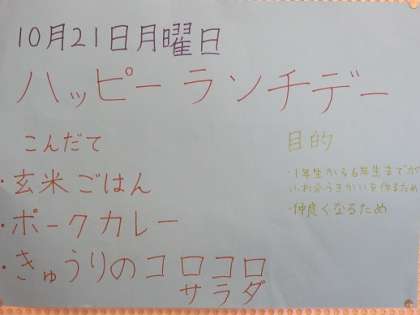 10月21日月曜日
ハッピーランチデー
こんだて
・玄米ごはん
・ポークカレー
・きゅうりのコロコロ
サラダ
目的
・1年生から6年生までが
ため
・仲良くなるため